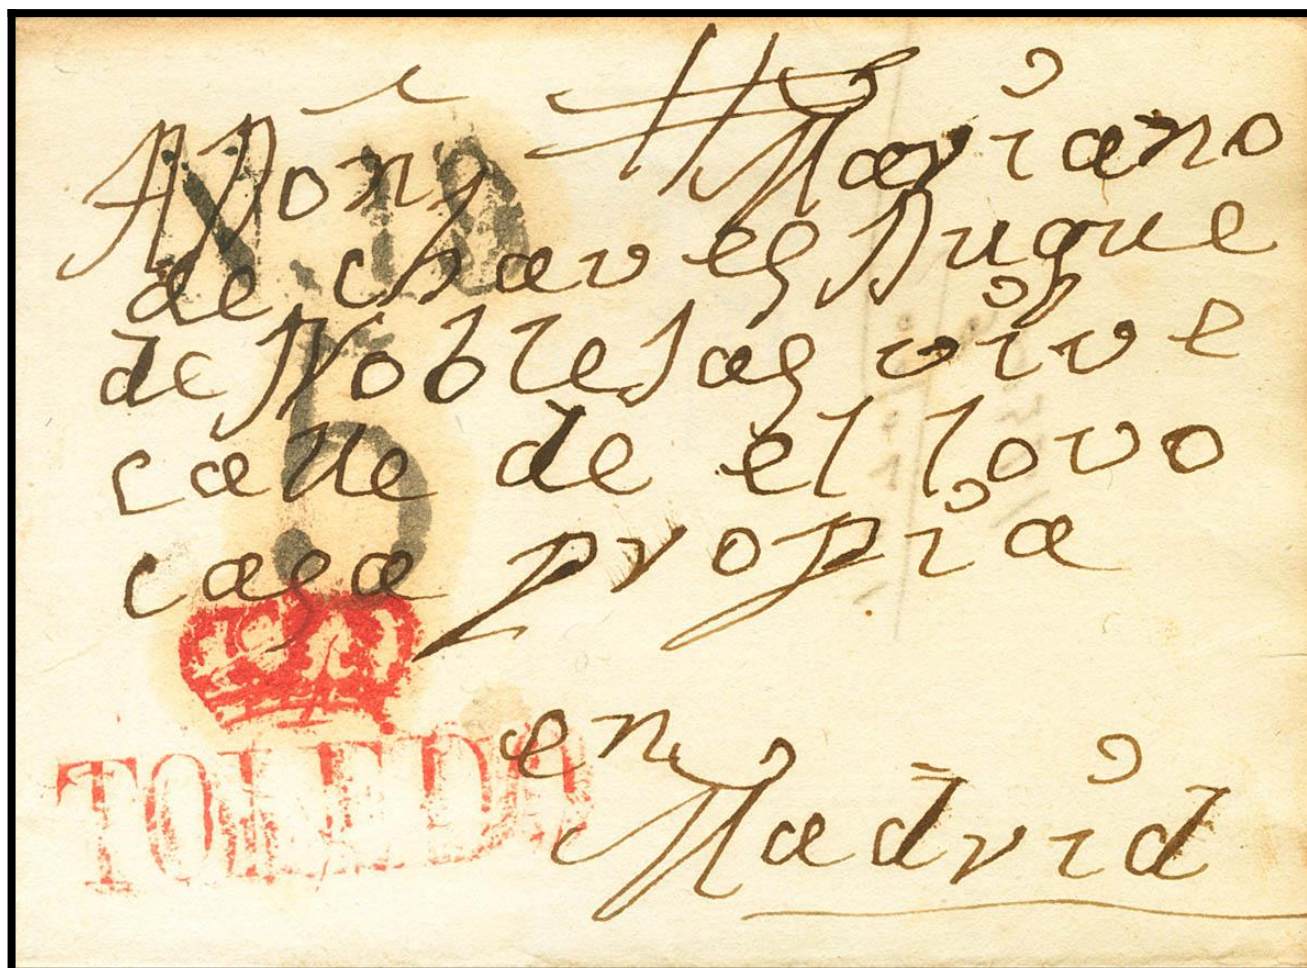 A Don Mariano
de chaves Duque
de Noblesas vive
calle de el lovo
casa propia
en
Madrid
N. 10
5
TOLEDO